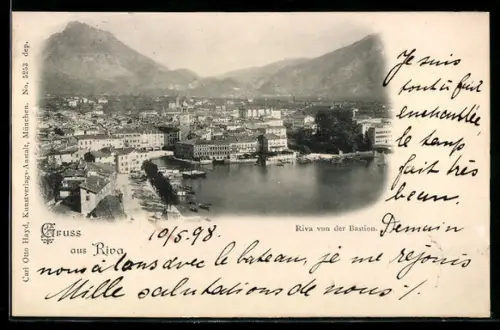 Carl Otto Hayd, Kunstverlags-Anstalt, München. No. 5253 dep.
Je suis
tout à fait
enchantée
le temps
fait très
beau.
Riva von der Bastion.
Demain
Gruss
aus Riva.
10/5.98.
nous allons avec le bateau, je me réjouis
Mille salutations de nous